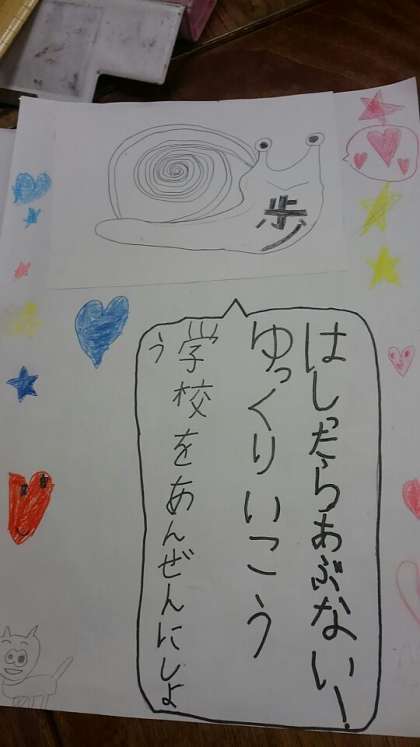 歩
はしったらあぶない!
ゆっくりいこう
学校をあんぜんにしよ
う